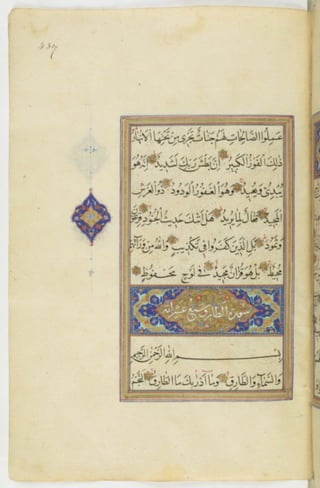 عَمِلُوا الصَّالِحَاتِ لَهُمْ جَنَّاتٌ تَجْرِي مِنْ تَحْتِهَا الْاَنْهَارُ
ذٰلِكَ الْفَوْزُ الْكَبِيرُ اِنَّ بَطْشَ رَبِّكَ لَشَدِيدٌ اِنَّهُ هُوَ
يُبْدِئُ وَيُعِيدُ وَهُوَ الْغَفُورُ الْوَدُودُ ذُو الْعَرْشِ
الْمَجِيدُ فَعَّالٌ لِمَا يُرِيدُ هَلْ اَتٰيكَ حَدِيثُ الْجُنُودِ فِرْعَوْنَ
وَثَمُودَ بَلِ الَّذِينَ كَفَرُوا فِي تَكْذِيبٍ وَاللهُ مِنْ وَرَآئِهِمْ
مُحِيطٌ بَلْ هُوَ قُرْاٰنٌ مَجِيدٌ فِي لَوْحٍ مَحْفُوظٍ
سورة الطارق سبع عشر اية
بِسْمِ اللهِ الرَّحْمٰنِ الرَّحِيمِ
وَالسَّمَآءِ وَالطَّارِقِ وَمَآ اَدْرٰيكَ مَا الطَّارِقُ النَّجْمُ